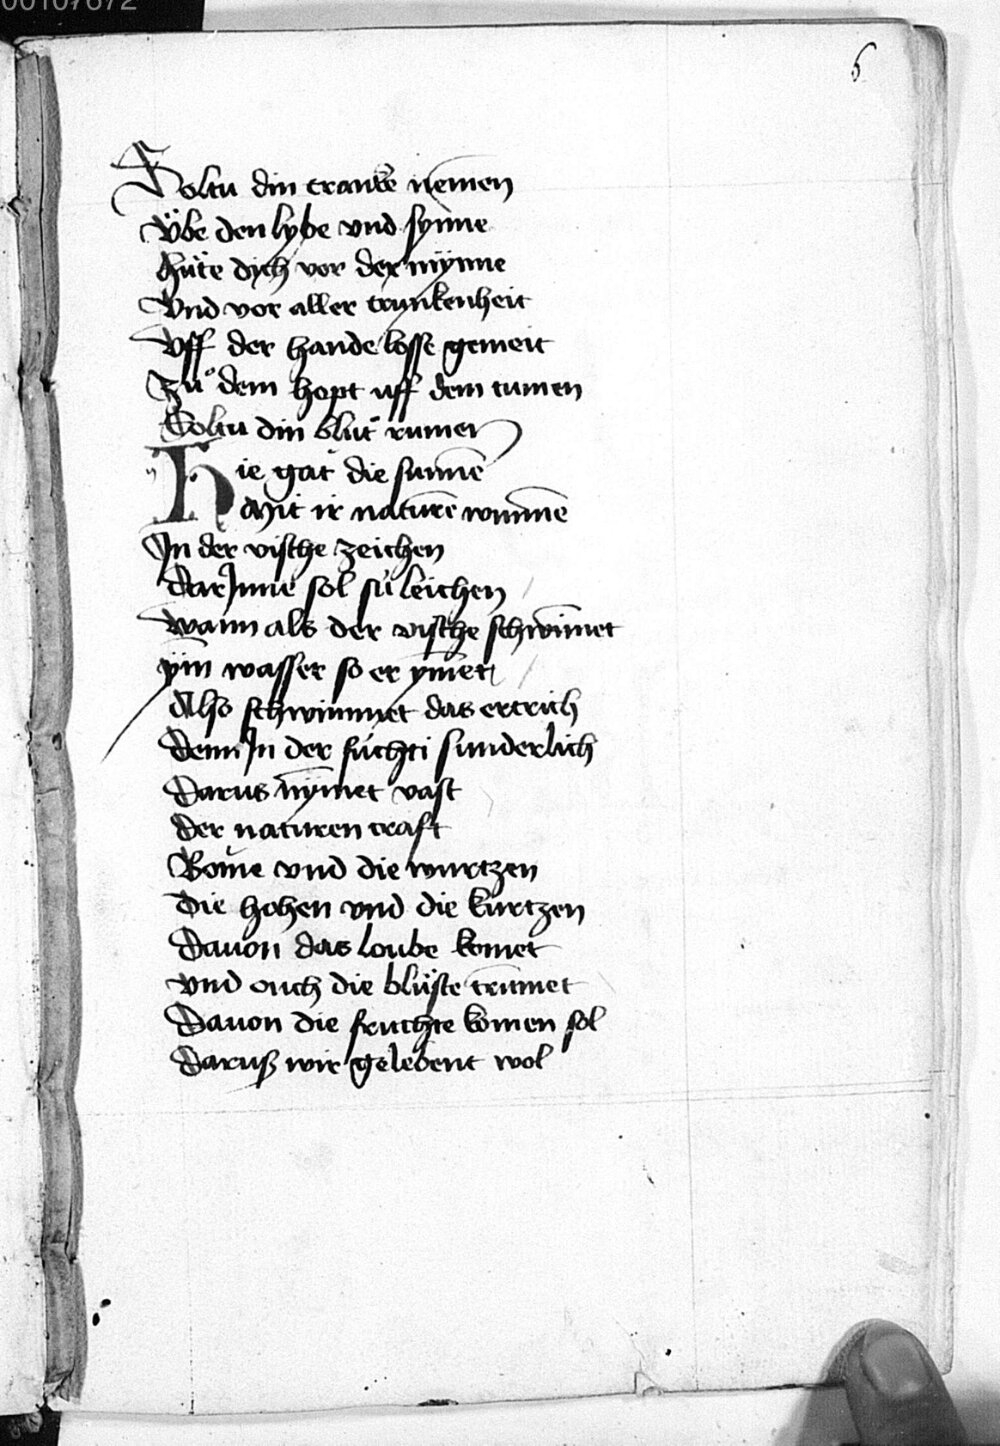 00107672
6
Soltu din trancke nemen
Übe den lybe vnd synne
Hüte dich vor der mynne
Vnd vor aller trunkenheit
Vff der hande losse gemeit
Zů dem hopt uff dem tumen
Soltu din blůt rumen
Hie gat die sunne
Mit ir naturē wunnē
In der vische zeichen
Dar Inne sol su leichen
Wann als der vische schwīmet
ym wasser so er ymet
Also schwimmet das ertrich
Denn In der fuchti sunderlich
Darus nymet vast
Der naturen craft
Bome vnd die wurtzen
Die hohen vnd die kurtzen
Dauon das loube komet
vnd ouch die blüste trumet
Dauon die fruchte komen sol
Daruß wir gelebent wol